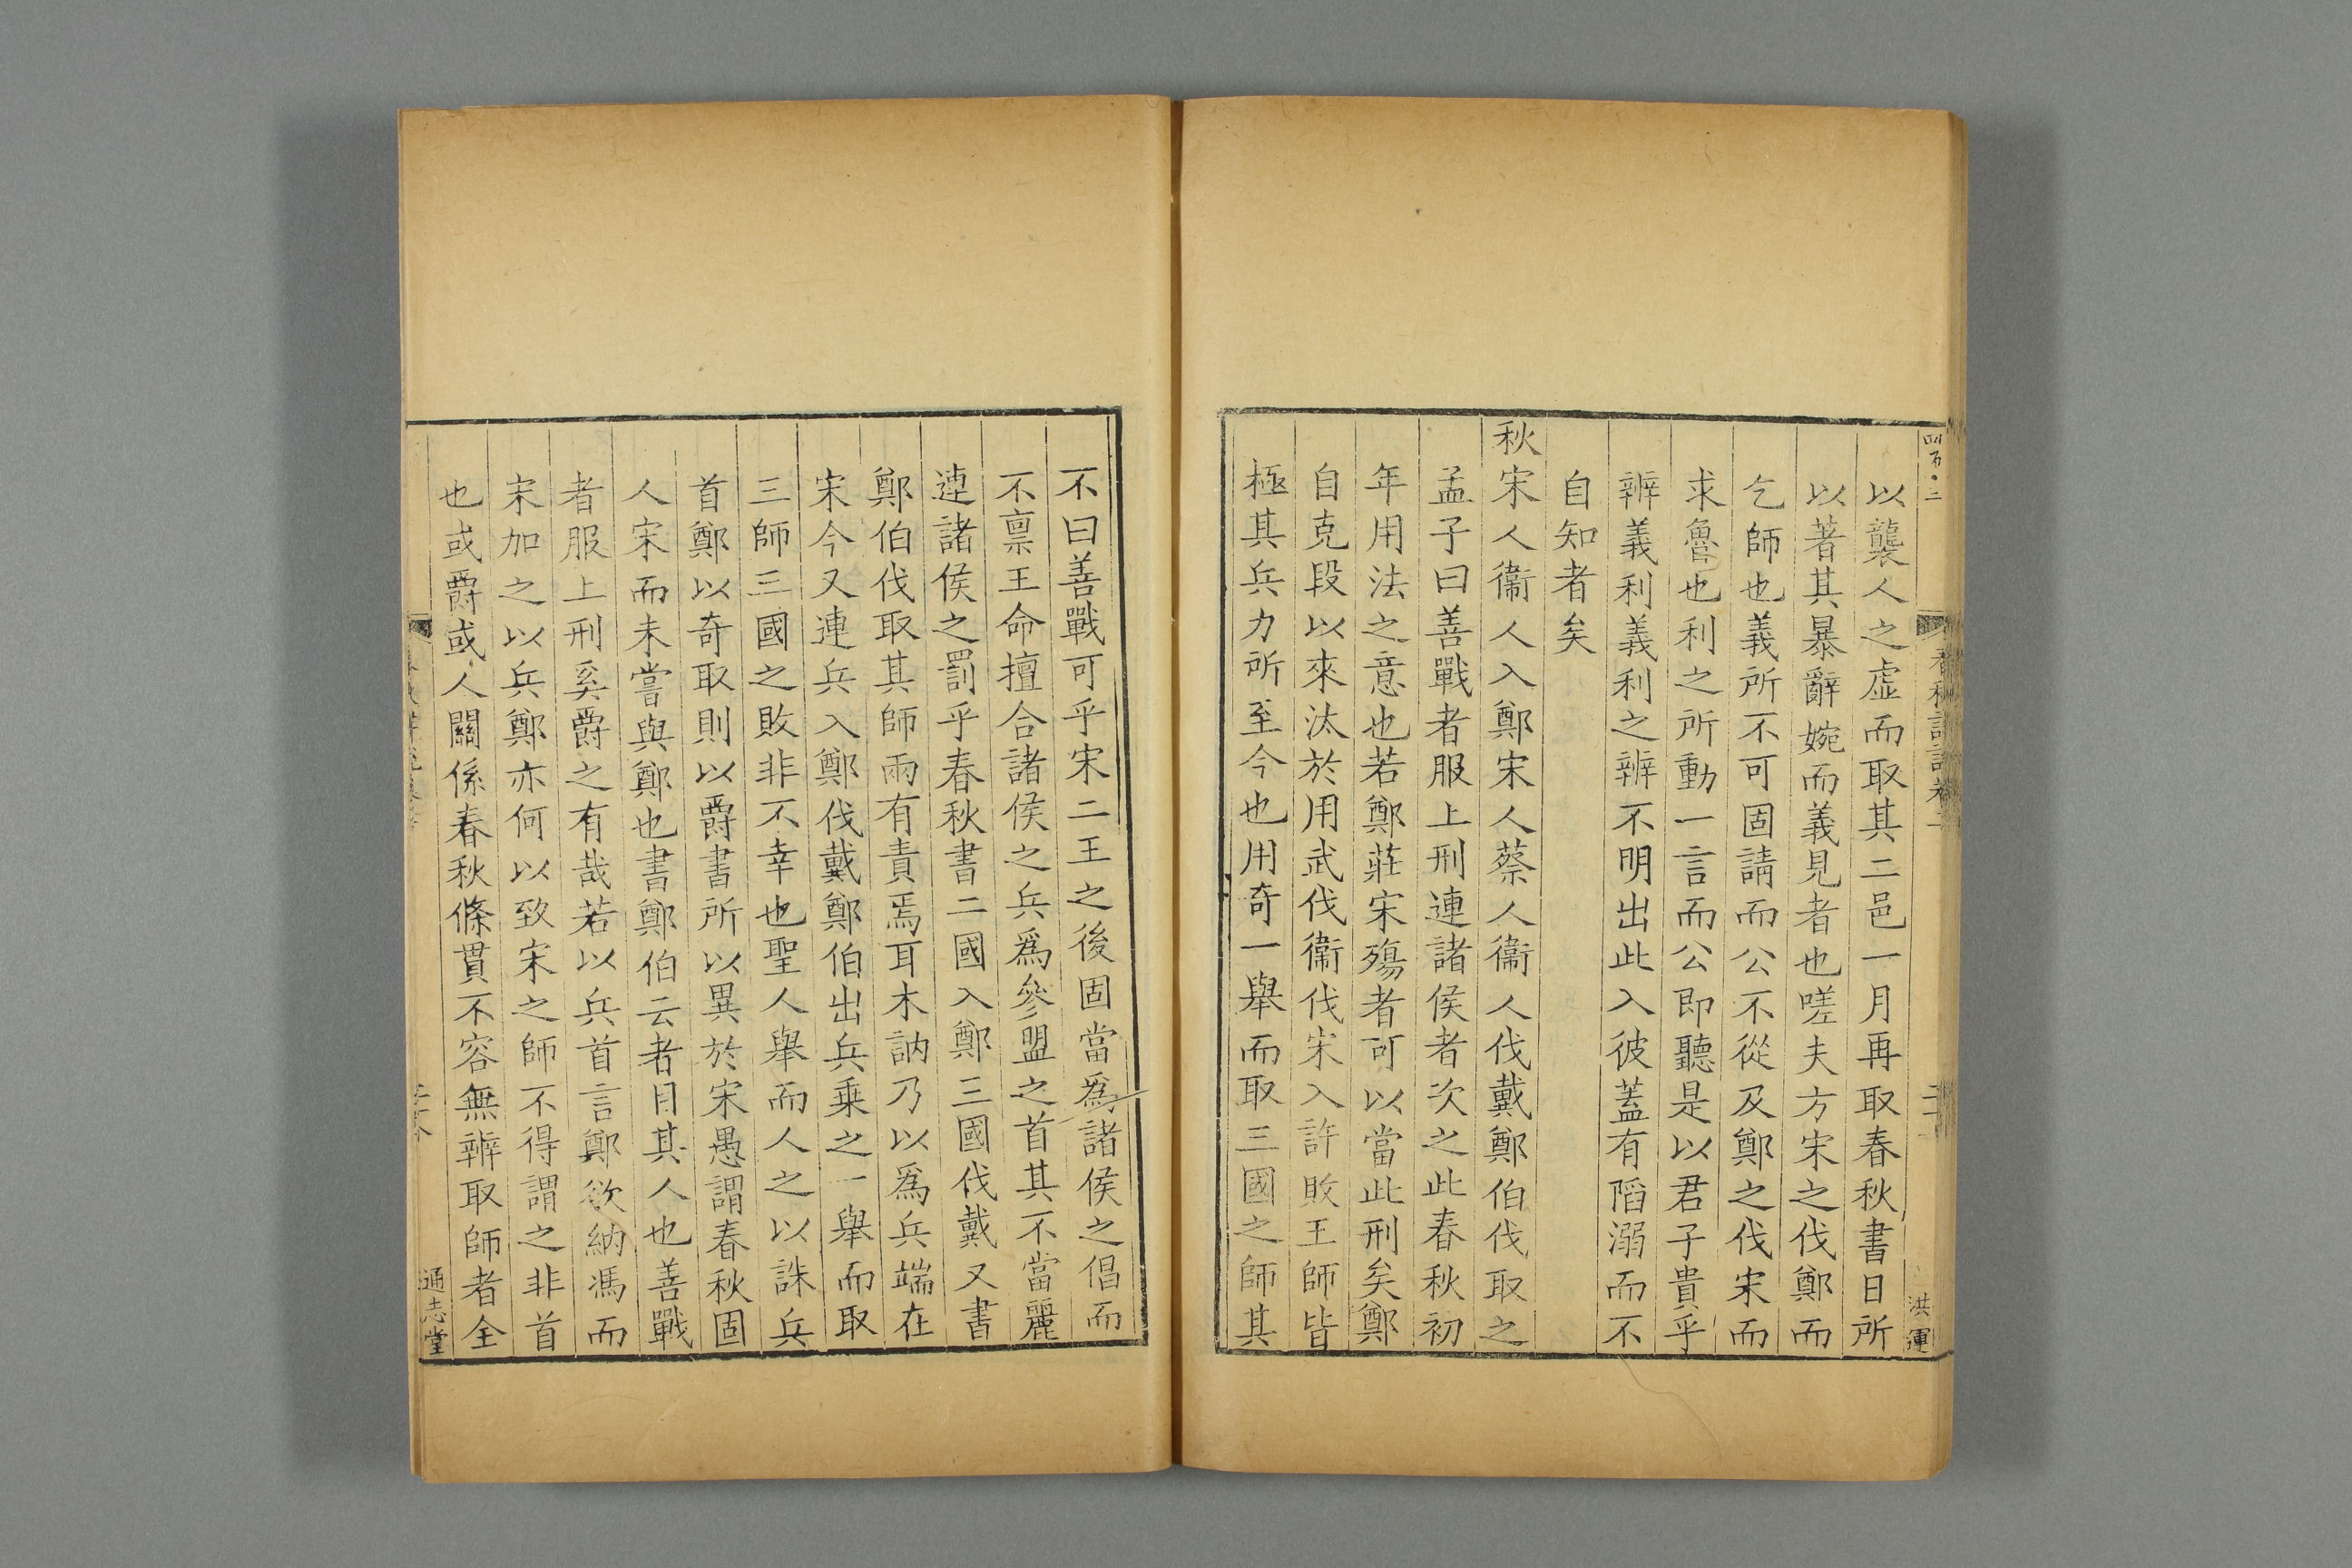 以襲人之虛而取其二邑一月再取春秋書日所
以著其暴辭婉而義見者也嗟夫方宋之伐鄭而
乞師也義所不可固請而公不從及鄭之伐宋而
求魯也利之所動一言而公即聽是以君子貴乎
辨義利義利之辨不明出此入彼蓋有陷溺而不
自知者矣
秋宋人衞人入鄭宋人蔡人衞人伐戴鄭伯伐取之
孟子曰善戰者服上刑連諸侯者次之此春秋初
年用法之意也若鄭莊宋殤者可以當此刑矣鄭
自克段以來汰於用武伐衞伐宋入許敗王師皆
極其兵力所至今也用奇一舉而取三國之師其
不曰善戰可乎宋二王之後固當爲諸侯之倡而
不禀王命擅合諸侯之兵爲參盟之首其不當麗
連諸侯之罰乎春秋書二國入鄭三國伐戴又書
鄭伯伐取其師兩有責焉耳木訥乃以爲兵端在
宋今又連兵入鄭伐戴鄭伯出兵乘之一舉而取
三師三國之敗非不幸也聖人舉而人之以誅兵
首鄭以奇取則以爵書所以異於宋愚謂春秋固
人宋而未嘗與鄭也書鄭伯云者目其人也善戰
者服上刑奚爵之有哉若以兵首言鄭欲納馮而
宋加之以兵鄭亦何以致宋之師不得謂之非首
也或爵或人關係春秋條貫不容無辨取師者全
通志堂
洪運